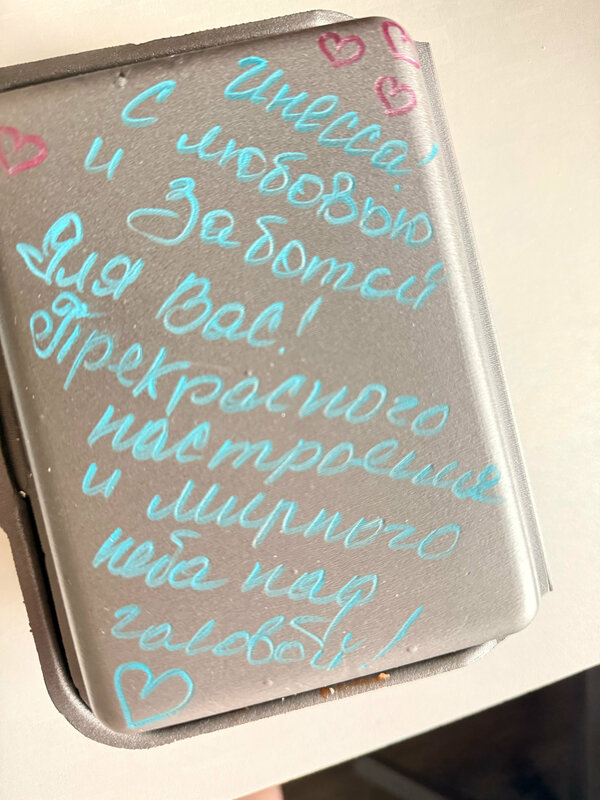 Инесса!
с любовью
и Заботой
Для Вас!
Прекрасного
настроения
и мирного
неба над
головой!